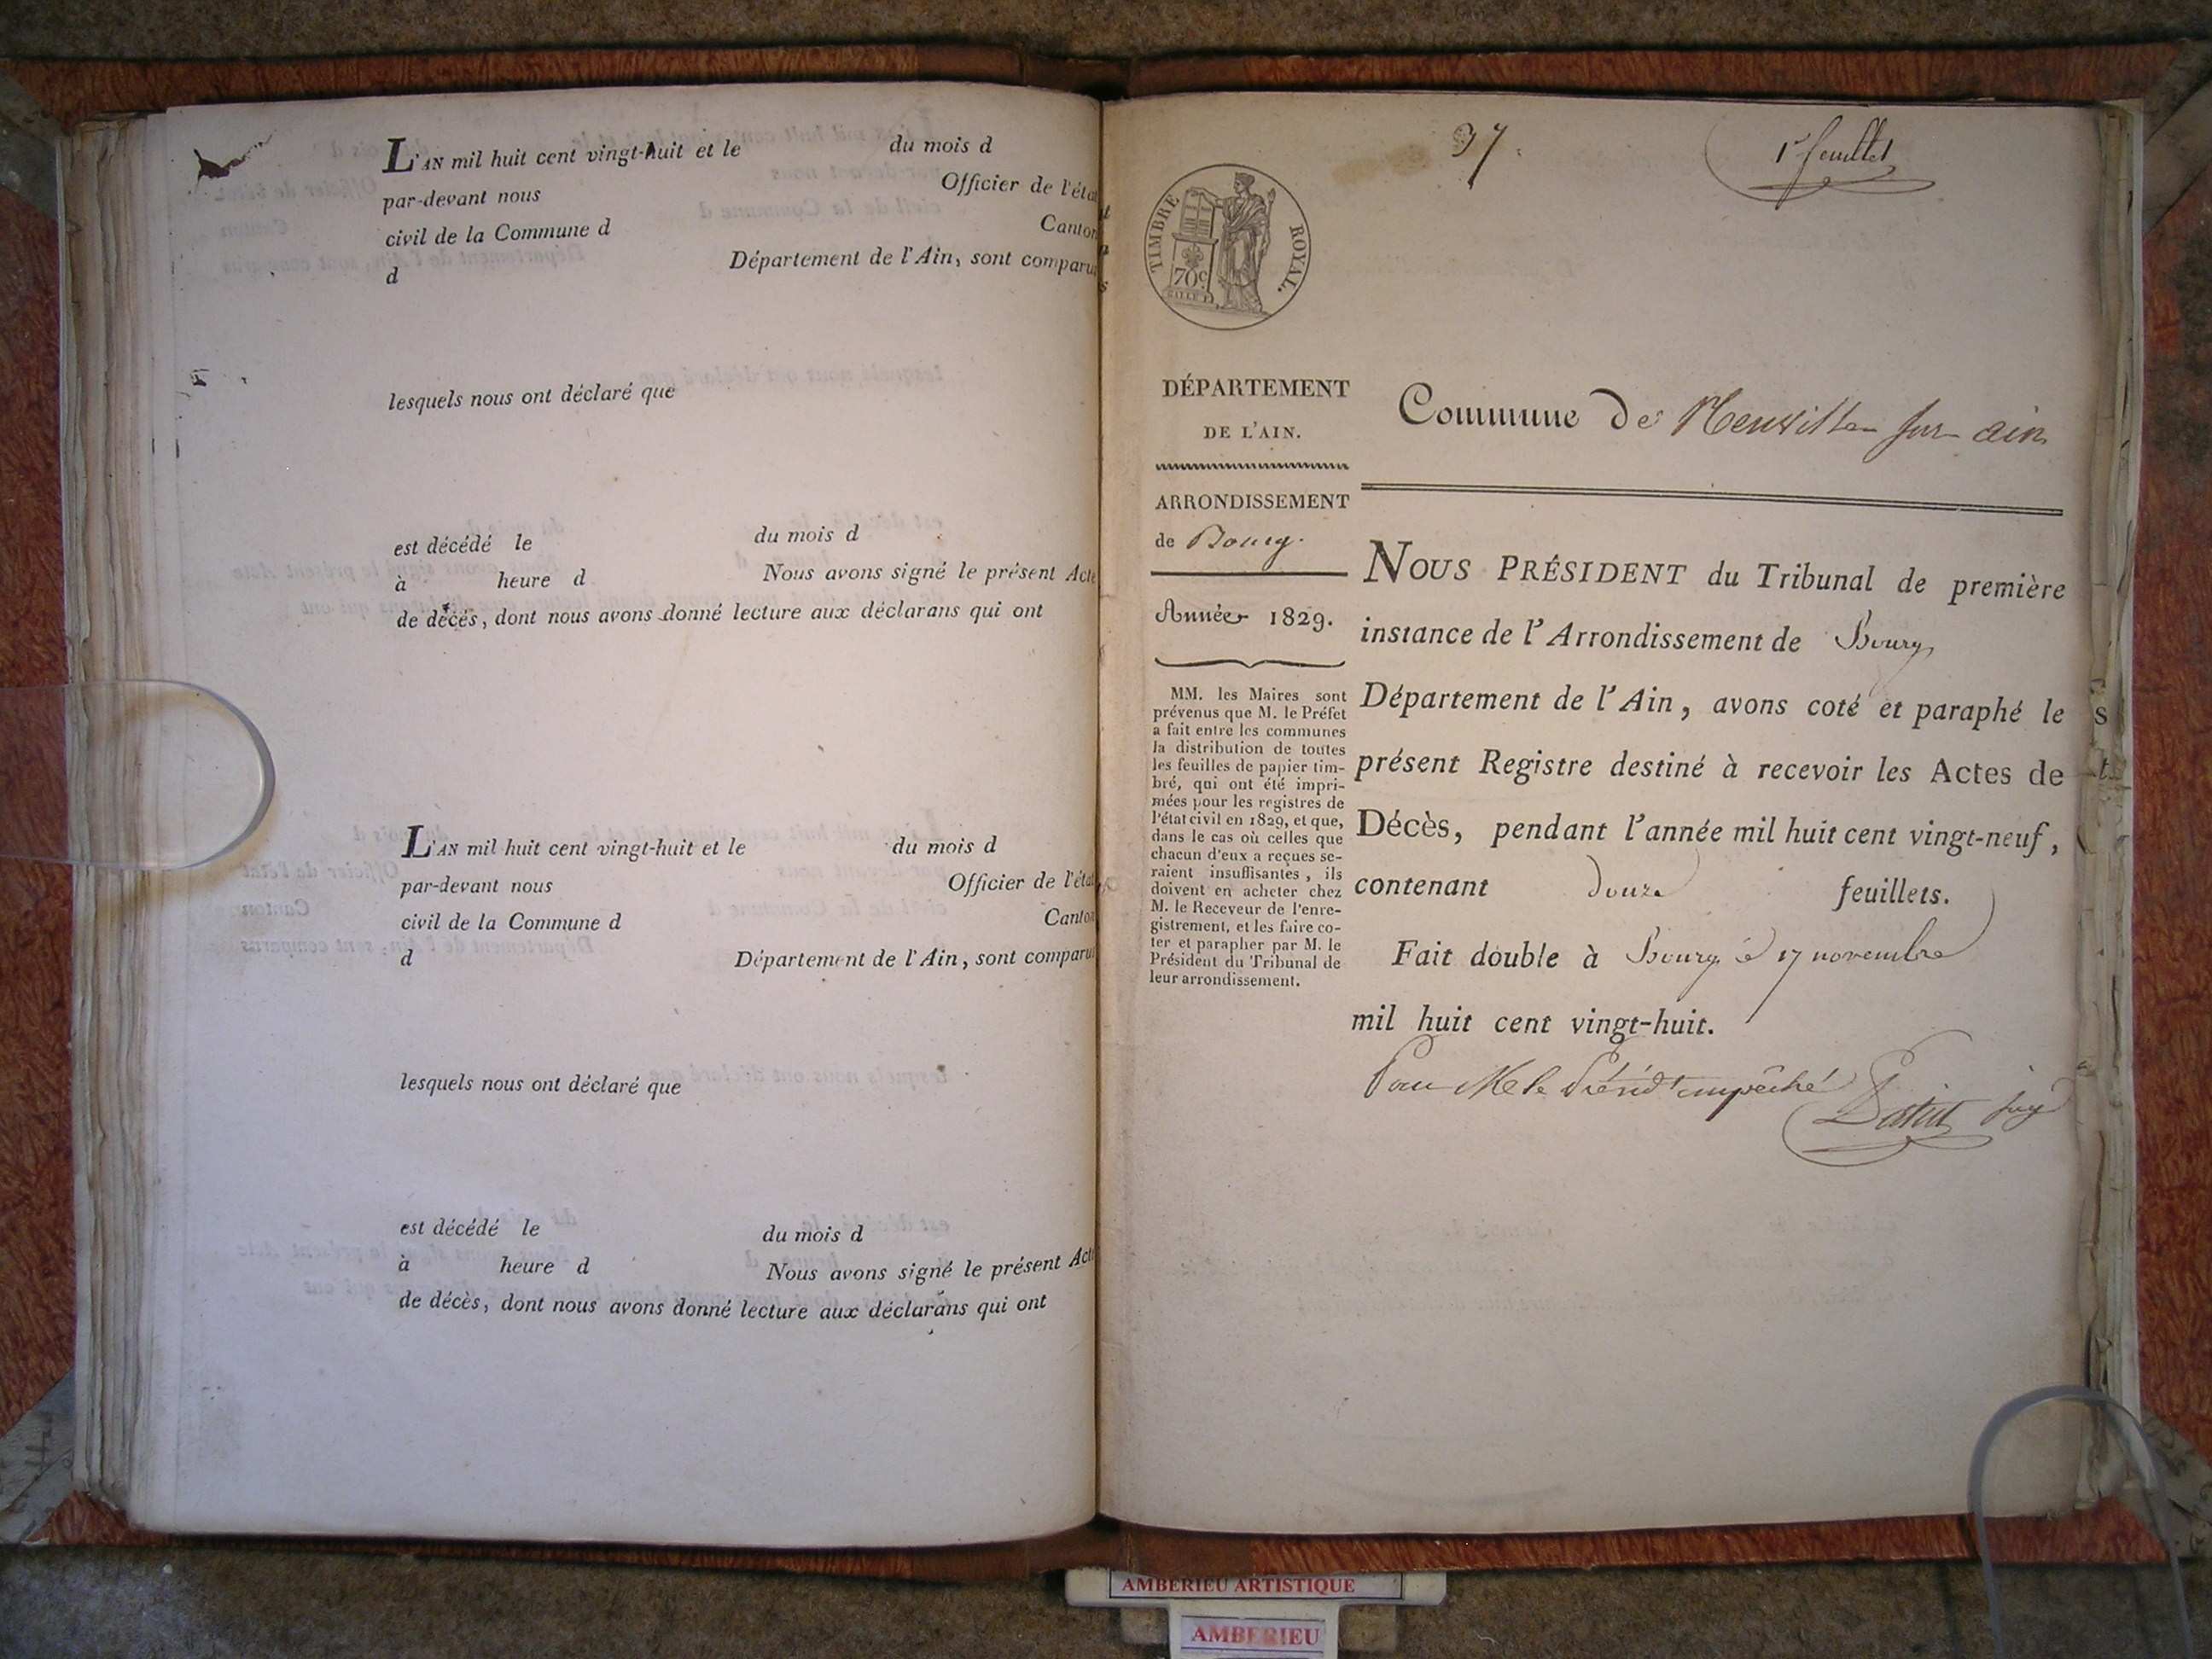 L'AN mil huit cent vingt-huit et le du mois d
par-devant nous Officier de l'état
civil de la Commune d Canton
d Département de l'Ain, sont comparu
lesquels nous ont déclaré que
est décédé le du mois d
à heure d Nous avons signé le présent Acte
de décès, dont nous avons donné lecture aux déclarans qui ont
L'AN mil huit cent vingt-huit et le du mois d
par-devant nous Officier de l'état
civil de la Commune d Canton
d Département de l'Ain, sont comparu
lesquels nous ont déclaré que
est décédé le du mois d
à heure d Nous avons signé le présent Acte
de décès, dont nous avons donné lecture aux déclarans qui ont
37.
1er feuillet
TIMBRE ROYAL.
70c
DÉPARTEMENT
DE L'AIN.
ARRONDISSEMENT
de Bourg.
Année 1829.
MM. les Maires sont
prévenus que M. le Préfet
a fait entre les communes
la distribution de toutes
les feuilles de papier tim-
bré, qui ont été impri-
mées pour les registres de
l'état civil en 1829, et que,
dans le cas où celles que
chacun d'eux a reçues se-
raient insuffisantes, ils
doivent en acheter chez
M. le Receveur de l'enre-
gistrement, et les faire co-
ter et parapher par M. le
Président du Tribunal de
leur arrondissement.
Commune de Neuville sur ain
NOUS PRÉSIDENT du Tribunal de première
instance de l'Arrondissement de Bourg
Département de l'Ain, avons coté et paraphé le
présent Registre destiné à recevoir les Actes de
Décès, pendant l'année mil huit cent vingt-neuf,
contenant douze feuillets.
Fait double à Bourg le 17 novembre
mil huit cent vingt-huit.
Pour Mr le Présidt empêché
juge
AMBERIEU ARTISTIQUE
AMBERIEU